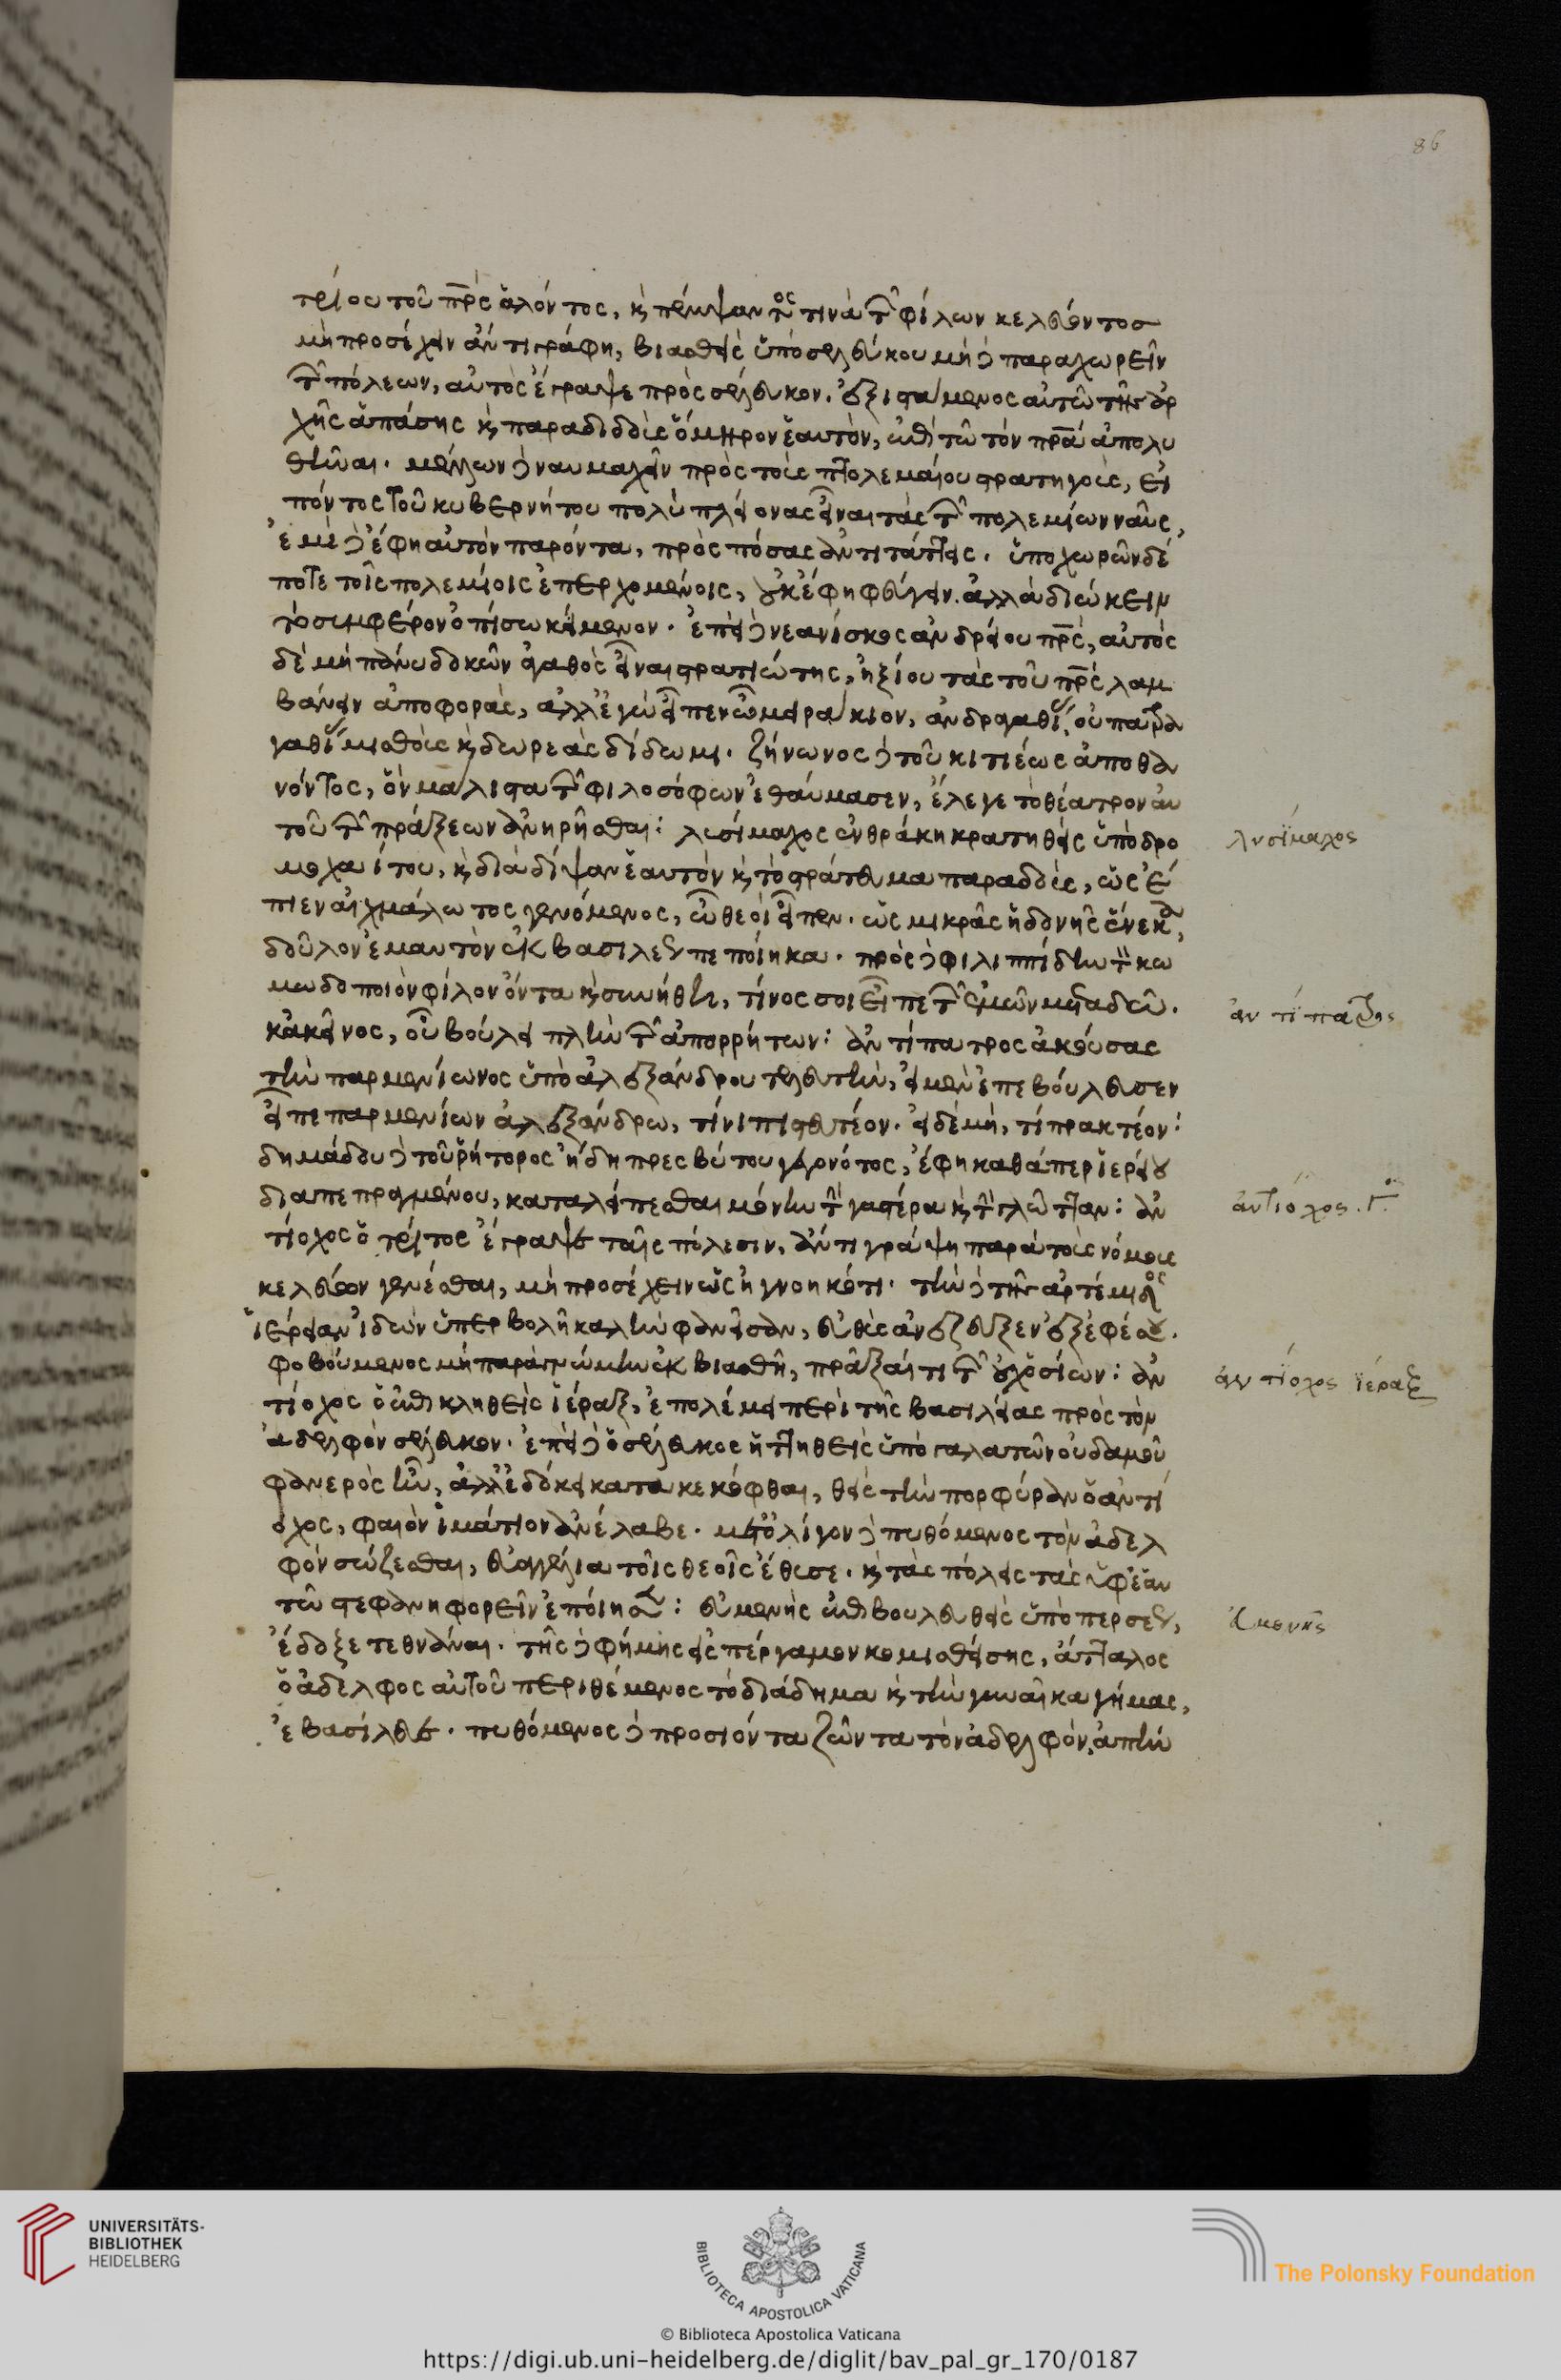 86
τρίου τοῦ πρ̅ς ἁλόντος, κ πέμψαντος τινὰ τ̑ φίλων κελεύοντος
μὴ προσέχειν ἂν τι γράφη, βιασθεὶς ὑπὸ σελεύκου μὴ δὲ παραχωρεῖν
τ̑ πόλεων, αὐτὸς ἔγραψε πρὸς σέλευκον. ἐξιστάμενος αὐτῶ τῆς ἀρ
χῆς ἁπάσης κ παραδιδοὺς ὅμηρον ἑαυτὸν, ἐπὶ τῶ τὸν πρ̅α ἀπολυ
θῆναι. μέλλων δὲ ναυμαχεῖν πρὸς τοὺς πτολεμαίου στρατηγοὺς, εἰ
πόντος τοῦ κυβερνήτου πολὺ πλείονας εἶναι τὰς τ̑ πολεμίων ναῦς,
ἐμὲ δὲ ἔφη αὐτὸν παρόντα, πρὸς πόσας ἀντιτάττεις. ὑποχωρῶν δέ
ποτε τοῖς πολεμίοις ἐπερχομένοις, οὐκ ἔφη φεύγειν. ἀλλὰ διώκειν
τὸ συμφέρον ὀπίσω κείμενον. ἐπεὶ δὲ νεανίσκος ἀνδρείου πρ̅ς, αὐτὸς
δὲ μὴ πάνυ δοκῶν ἀγαθὸς εἶναι στρατιώτης, ἠξίου τὰς τοῦ πρ̅ς λαμ
βάνειν ἀποφορὰς, ἀλλ' ἐγὼ εἶπεν ὦ μειράκιον, ἀνδραγαθίας, οὐ πατρα
γαθίας μισθοὺς κ δωρεὰς δίδωμι. ζήνωνος δὲ τοῦ κιτιέως ἀποθα
νόντος, ὃν μάλιστα τ̑ φιλοσόφων ἐθαύμασεν, ἔλεγε τὸ θέατρον αυ
τοῦ τ̑ πράξεων ἀνηρῆσθαι: λυσίμαχος ἐν θράκη κρατηθεὶς ὑπὸ δρο
μοχαίτου, κ διὰ δίψαν ἑαυτὸν κ τὸ στράτευμα παραδοὺς, ὡς ἔ
πιεν αἰχμάλωτος γενόμενος, ὦ θεοὶ εἶπεν. ὡς μικρᾶς ἡδονῆς ἕνεκα,
δοῦλον ἐμαυτὸν ἐκ βασιλέως πεποίηκα. πρὸς δὲ φιλιππίδην τ κω
μωδοποιὸν φίλον ὄντα κ συνήθη, τίνος σοι εἶπε τ̑ ἐμῶν μεταδῶ.
κἀκεῖνος, οὗ βούλει πλὴν τ̑ ἀπορρήτων: ἀντίπατρος ἀκούσας
τὴν παρμενίωνος ὑπὸ ἀλεξάνδρου τελευτὴν, εἰ μὲν ἐπεβούλευσεν
εἶπε παρμενίων ἀλεξάνδρω, τίνι πιστευτέον. εἰ δὲ μὴ, τί πρακτέον:
δημάδου δὲ τοῦ ῥήτορος ἤδη πρεσβύτου γεγονότος, ἔφη καθάπερ ἱερείου
διαπεπραγμένου, καταλείπεσθαι μόνην τ γαστέρα κ τ γλῶτταν: ἀν
τίοχος ὁ τρίτος ἔγραψε ταῖς πόλεσιν, ἄν τι γράψη παρὰ τοὺς νόμους
κελεύων γενέσθαι, μὴ προσέχειν ὡς ἠγνοηκότι. τὴν δὲ τῆς ἀρτέμιδος
ἱέρειαν ἰδὼν ὑπερβολῆ καλὴν φανεῖσαν, εὐθὺς ἀνέζευξεν ἐξ ἐφέσου.
φοβούμενος μὴ παρὰ γνώμην ἐκβιασθῆ, πρᾶξαί τι τ̑ οὐχ ὁσίων: ἀν
τίοχος ὁ ἐπικληθεὶς ἱέραξ, ἐπολέμει περὶ τῆς βασιλείας πρὸς τὸν
ἀδελφὸν σέλευκον. ἐπεὶ δὲ ὁ σέλευκος ἡττηθεὶς ὑπὸ γαλατῶν οὐδαμοῦ
φανερὸς ἦν, ἀλλ' ἐδόκει κατακεκόφθαι, θεὶς τὴν πορφύραν ὁ ἀντί
οχος, φαιὸν ἱμάτιον ἀνέλαβε. μετ' ὀλίγον δὲ πυθόμενος τὸν ἀδελ
φὸν σώζεσθαι, εὐαγγέλια τοῖς θεοῖς ἔθυσε. κ τὰς πόλεις τὰς ὑφ' ἑαυ
τῶ στεφανηφορεῖν ἐποίησεν: εὐμενὴς ἐπιβουλευθεὶς ὑπὸ περσέως,
ἔδοξε τεθνάναι. τῆς δὲ φήμης εἰς πέργαμον κομισθείσης, ἄτταλος
ὁ ἀδελφος αὐτοῦ περιθέμενος τὸ διάδημα κ τὴν γυναῖκα γήμας,
ἐβασίλευε. πυθόμενος δὲ προσιόντα ζῶντα τὸν ἀδελφὸν, ἀπήν
λυσίμαχος
ἀντίπατρος
ἀντίοχος. Γος
ἀντίοχος ἱέραξ
εὐμενὴς
UNIVERSITÄTS-
BIBLIOTHEK
HEIDELBERG
BIBLIOTECA APOSTOLICA VATICANA
The Polonsky Foundation
© Biblioteca Apostolica Vaticana
https://digi.ub.uni-heidelberg.de/diglit/bav_pal_gr_170/0187